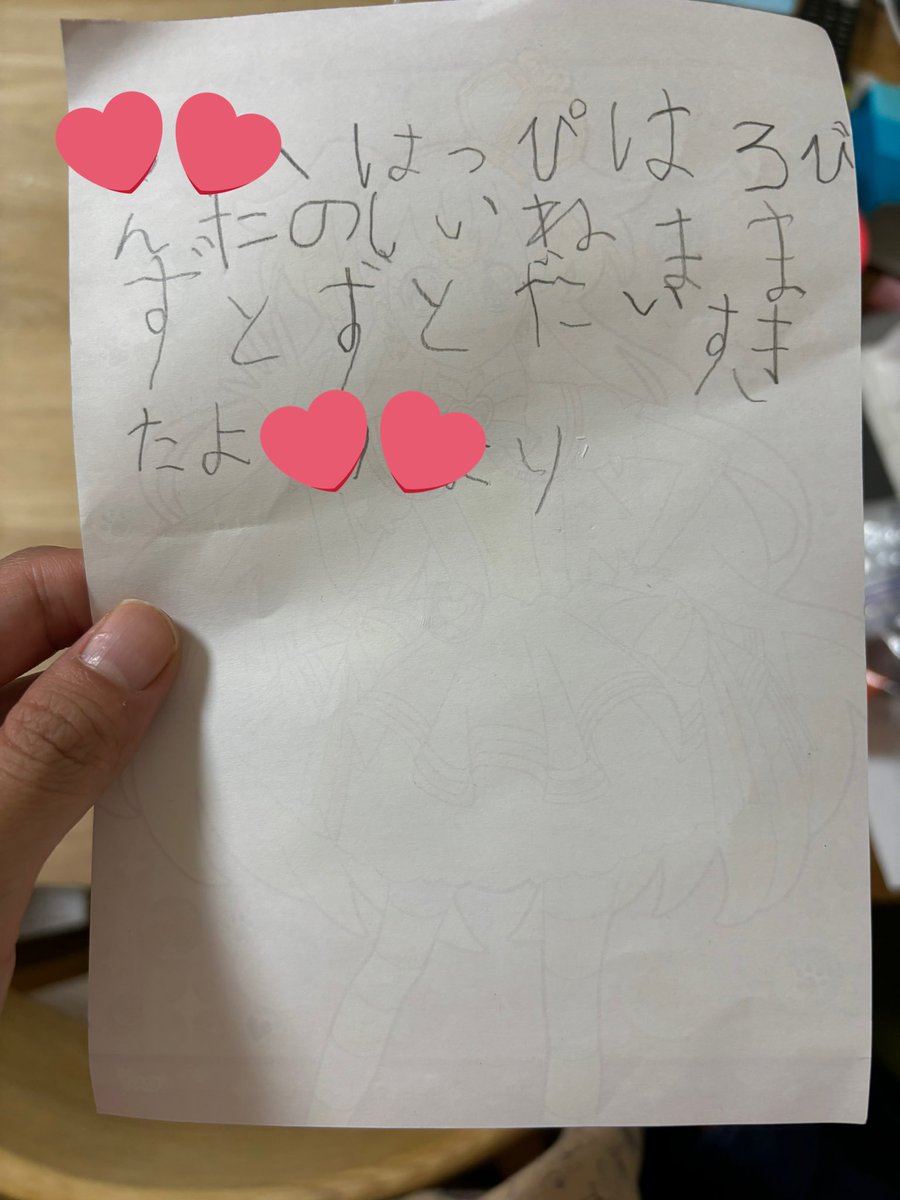 へ はっぴ は ろび
んたのしいね まま
ずとずと だいすき
たよ より